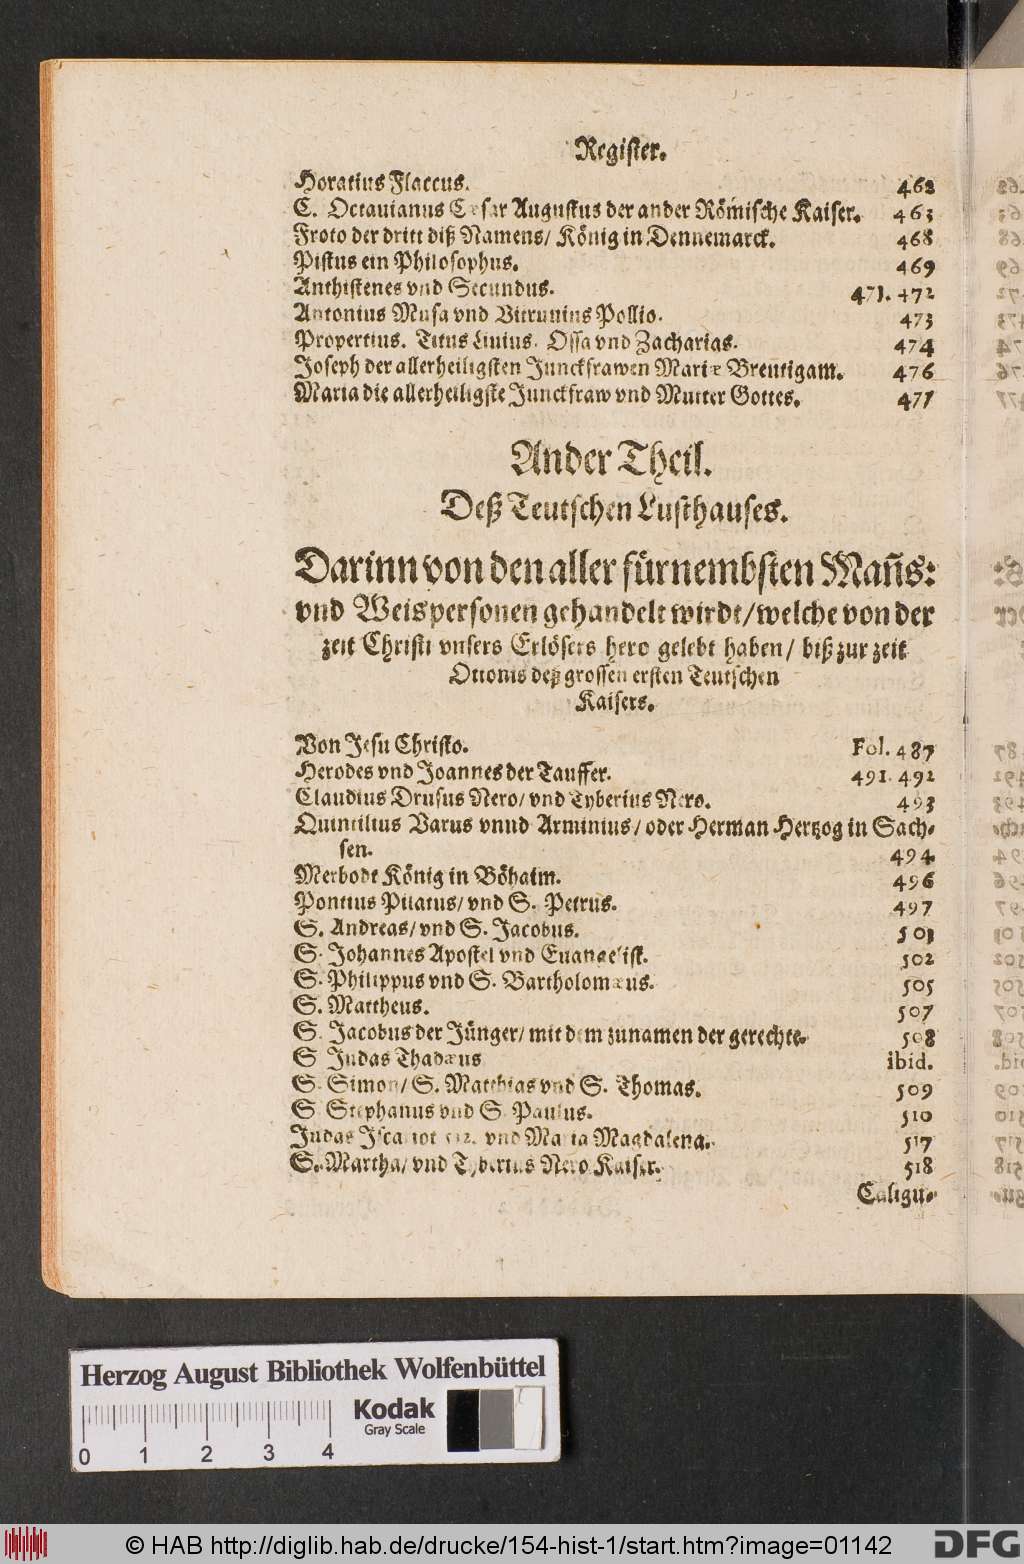 Register.
Horatius Flaccus. 462
C. Octauianus Cæsar Augustus der ander Römische Kaiser. 463
Froto der dritt diß Namens/ König in Dennemarck. 468
Pistus ein Philosophus. 469
Anthistenes vnd Secundus. 471. 472
Antonius Musa vnd Vitruuius Pollio. 473
Propertius. Titus Liuius. Ossa vnd Zacharias. 474
Joseph der allerheiligsten Junckfrawen Mariæ Breutigam. 476
Maria die allerheiligste Junckfraw vnd Mutter Gottes. 477
Ander Theil.
Deß Teutschen Lusthauses.
Darinn von den aller fürnembsten Mañs:
vnd Weispersonen gehandelt wirdt/ welche von der
zeit Christi vnsers Erlösers hero gelebt haben/ biß zur zeit
Ottonis deß grossen ersten Teutschen
Kaisers.
Von Jesu Christo. Fol. 487
Herodes vnd Joannes der Tauffer. 491. 492
Claudius Drusus Nero/ vnd Tyberius Nero. 493
Quintilius Varus vnnd Arminius/ oder Herman Hertzog in Sach-
sen. 494
Merbodt König in Böhaim. 496
Pontius Pilatus/ vnd S. Petrus. 497
S. Andreas/ vnd S. Jacobus. 501
S. Johannes Apostel vnd Euangelist. 502
S. Philippus vnd S. Bartholomæus. 505
S. Mattheus. 507
S. Jacobus der Jünger/ mit dem zunamen der gerechte. 508
S Judas Thadæus ibid.
S. Simon/ S. Matthias vnd S. Thomas. 509
S. Stephanus vnd S. Paulus. 510
Judas Iscariot 512. vnd Maria Magdalena. 517
S. Martha/ vnd Tyberius Nero Kaiser. 518
Caligu-
Herzog August Bibliothek Wolfenbüttel
Kodak
Gray Scale
0 1 2 3 4
© HAB http://diglib.hab.de/drucke/154-hist-1/start.htm?image=01142
DFG